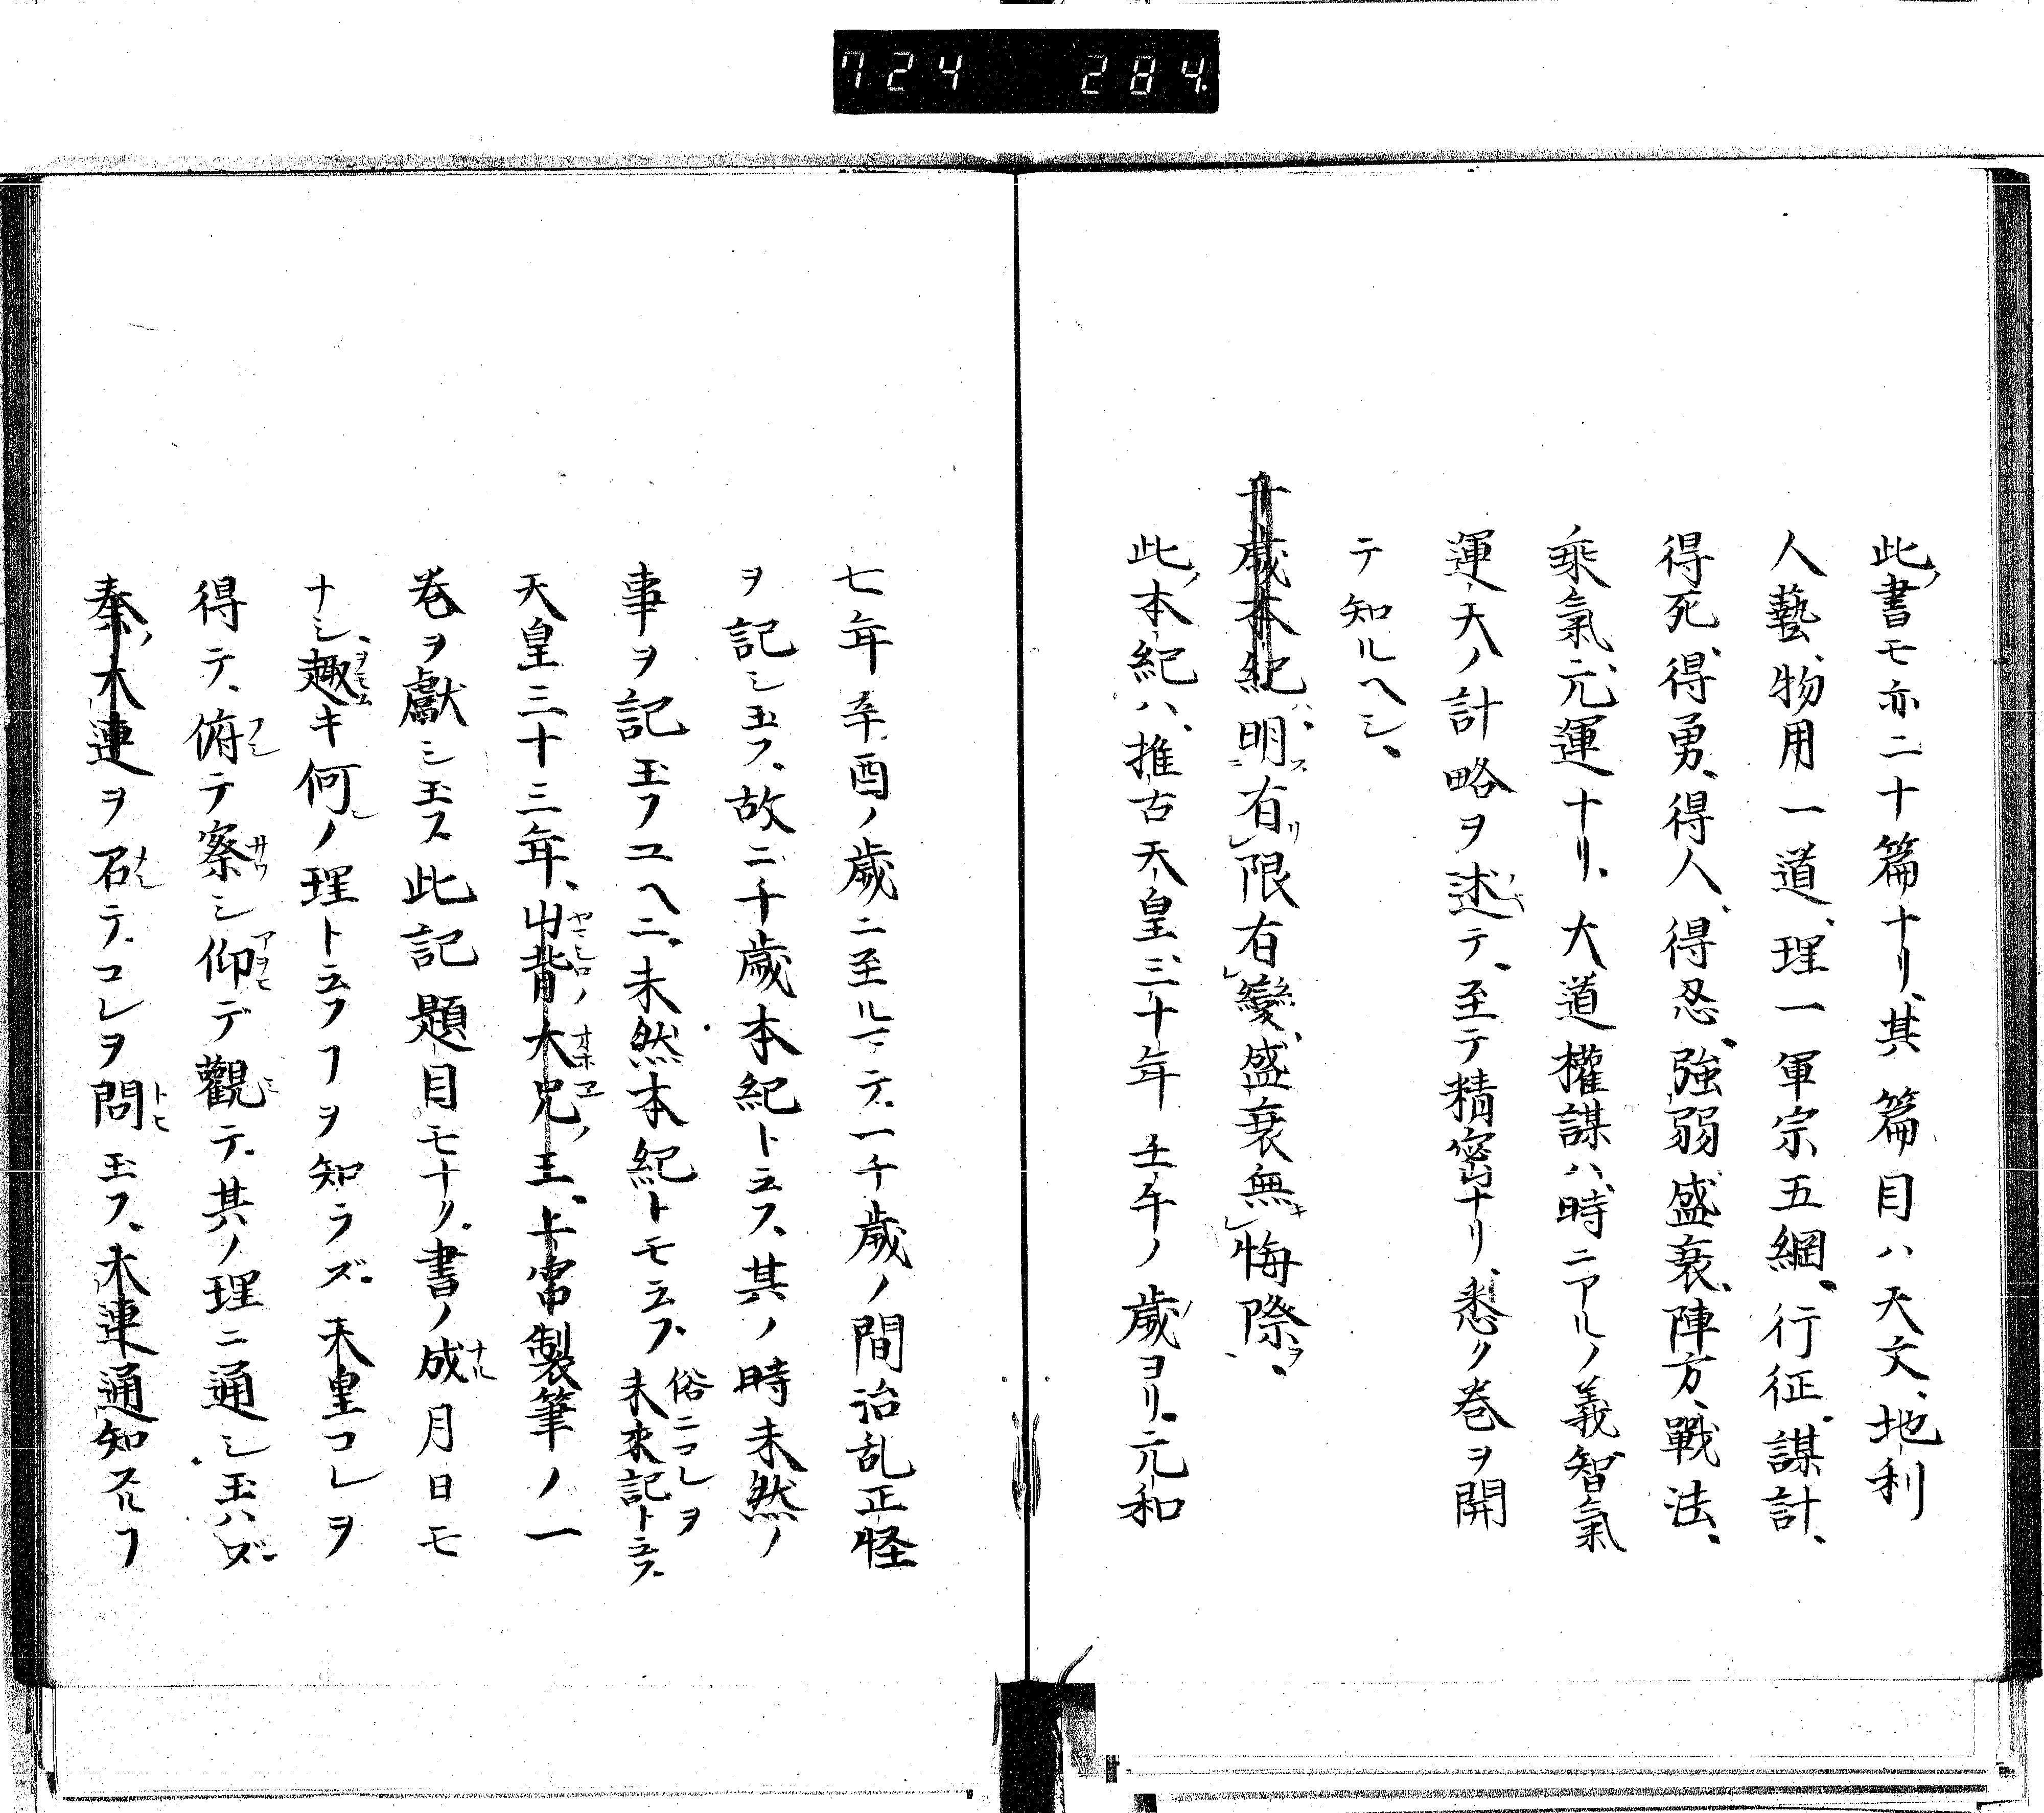 724 284
此ノ書モ亦二十篇ナリ、其篇目ハ天文、地利
人藝、物用一道、理一軍宗五綱、行征、謀計、
得死、得勇、得人、得忍、強弱盛衰、陣方、戰法、
乘氣、元運ナリ、大道權謀ハ、時ニアルノ義智氣
運天ノ計略ヲ述テ、至テ精密ナリ、悉ク巻ヲ開
テ知ルヘシ、
千歳本紀ハ、明ス有リ限有ル變、盛衰無キ悔際ヲ、
此ノ本紀ハ、推古天皇、三十年壬午ノ歳ヨリ、元和
七年辛酉ノ歳ニ至ルマテ、一千歳ノ間治乱正怪
ヲ記シ玉フ、故ニ千歳本紀ト云フ、其ノ時未然ノ
事ヲ記玉フユヘニ、未然本紀トモ云フ、俗ニコレヲ未來記ト云フ、
天皇三十三年、山背ノ大兄ノ王、上宮製筆ノ一
巻ヲ獻シ玉フ此記題目モナリ、書ノ成月日モ
ナシ、趣キ何ノ理ト云フヿヲ知ラズ、天皇コレヲ
得テ、俯テ察シ仰デ觀テ、其ノ理ニ通シ玉ハズ、
秦ノ大連ヲ召テ、コレヲ問玉フ、大連通知スルヿ